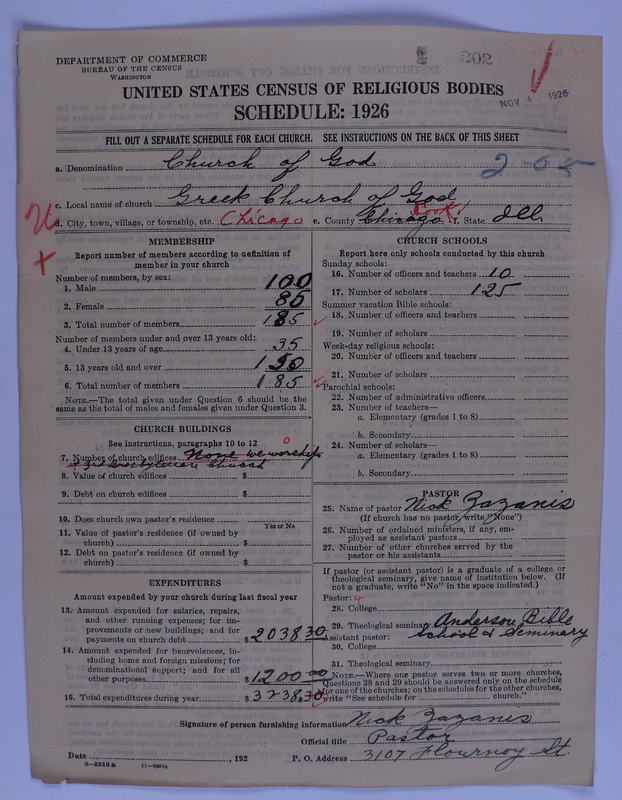 DEPARTMENT OF COMMERCE
BUREAU OF THE CENSUS
WASHINGTON
202
NOV 4 1926
UNITED STATES CENSUS OF RELIGIOUS BODIES
SCHEDULE: 1926
FILL OUT A SEPARATE SCHEDULE FOR EACH CHURCH. SEE INSTRUCTIONS ON THE BACK OF THIS SHEET
a. Denomination Church of God
c. Local name of church Greek Church of God
d. City, town, village, or township, etc. Chicago e. County Chicago Cook f. State Ill.
MEMBERSHIP
Report number of members according to definition of
member in your church
Number of members, by sex:
1. Male 100
2. Female 85
3. Total number of members 185
Number of members under and over 13 years old:
4. Under 13 years of age 35
5. 13 years old and over 150
6. Total number of members 185
NOTE.—The total given under Question 6 should be the
same as the total of males and females given under Question 3.
CHURCH BUILDINGS
See instructions, paragraphs 10 to 12
0
7. Number of church edifices None we worship
Church
8. Value of church edifices $
9. Debt on church edifices $
10. Does church own pastor's residence
Yes or No
11. Value of pastor's residence (if owned by
church) $
12. Debt on pastor's residence (if owned by
church) $
EXPENDITURES
Amount expended by your church during last fiscal year
13. Amount expended for salaries, repairs,
and other running expenses; for im-
provements or new buildings; and for
payments on church debt $ 2038.30
14. Amount expended for benevolences, in-
cluding home and foreign missions; for
denominational support; and for all
other purposes $ 1200.00
15. Total expenditures during year $ 3238.30
CHURCH SCHOOLS
Report here only schools conducted by this church
Sunday schools:
16. Number of officers and teachers 10
17. Number of scholars 125
Summer vacation Bible schools:
18. Number of officers and teachers
19. Number of scholars
Week-day religious schools:
20. Number of officers and teachers
21. Number of scholars
Parochial schools:
22. Number of administrative officers
23. Number of teachers—
a. Elementary (grades 1 to 8)
b. Secondary
24. Number of scholars—
a. Elementary (grades 1 to 8)
b. Secondary
PASTOR
25. Name of pastor Nick Zazanis
(If church has no pastor, write "None")
26. Number of ordained ministers, if any, em-
ployed as assistant pastors
27. Number of other churches served by the
pastor or his assistants
If pastor (or assistant pastor) is a graduate of a college or
theological seminary, give name of institution below. (If
not a graduate, write "No" in the space indicated.)
Pastor: 4
28. College
29. Theological seminary Anderson Bible
Assistant pastor: School & Seminary
30. College
31. Theological seminary
NOTE.—Where one pastor serves two or more churches,
Questions 28 and 29 should be answered only on the schedule
for one of the churches; on the schedules for the other churches,
write "See schedule for church."
Signature of person furnishing information Nick Zazanis
Official title Pastor
Date , 192 P. O. Address 3107 Flournoy St.